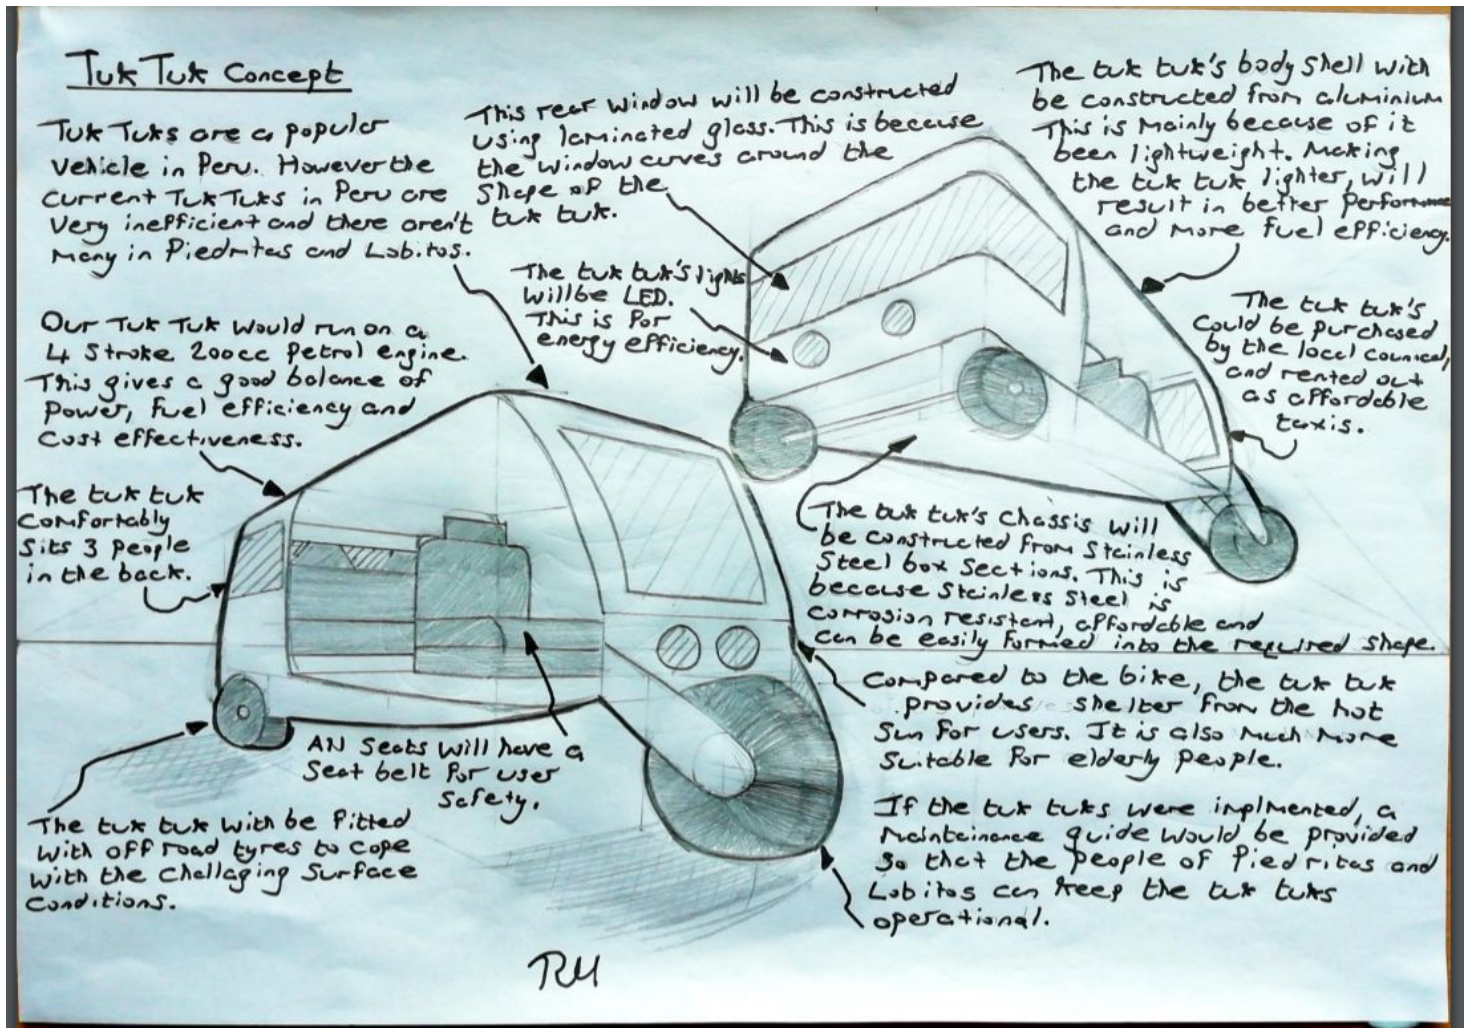 Tuk Tuk Concept
Tuk Tuks are a popular
vehicle in Peru. However the
current Tuk Tuks in Peru are
very inefficient and there aren't
many in Piedritas and Lobitos.
Our Tuk Tuk would run on a
4 stroke 200cc petrol engine.
This gives a good balance of
power, fuel efficiency and
cost effectiveness.
The tuk tuk
comfortably
sits 3 people
in the back.
The tuk tuk with be fitted
with off road tyres to cope
with the challaging surface
conditions.
This rear window will be constructed
using laminated glass. This is because
the window curves around the
shape of the
tuk tuk.
The tuk tuk's lights
will be LED.
This is for
energy efficiency.
All seats will have a
seat belt for user
safety.
The tuk tuk's body shell with
be constructed from aluminium
This is mainly because of it
been lightweight. Making
the tuk tuk lighter, will
result in better performance
and more fuel efficiency.
The tuk tuk's
could be purchased
by the local councal,
and rented out
as affordable
taxis.
The tuk tuk's chassis will
be constructed from stainless
steel box sections. This is
because stainless steel is
corrosion resistant, affordable and
can be easily formed into the required shape.
Compared to the bike, the tuk tuk
provides shelter from the hot
sun for users. It is also much more
suitable for elderly people.
If the tuk tuks were implmented, a
maintainance guide would be provided
so that the people of Piedritas and
Lobitos can keep the tuk tuks
operational.
RM